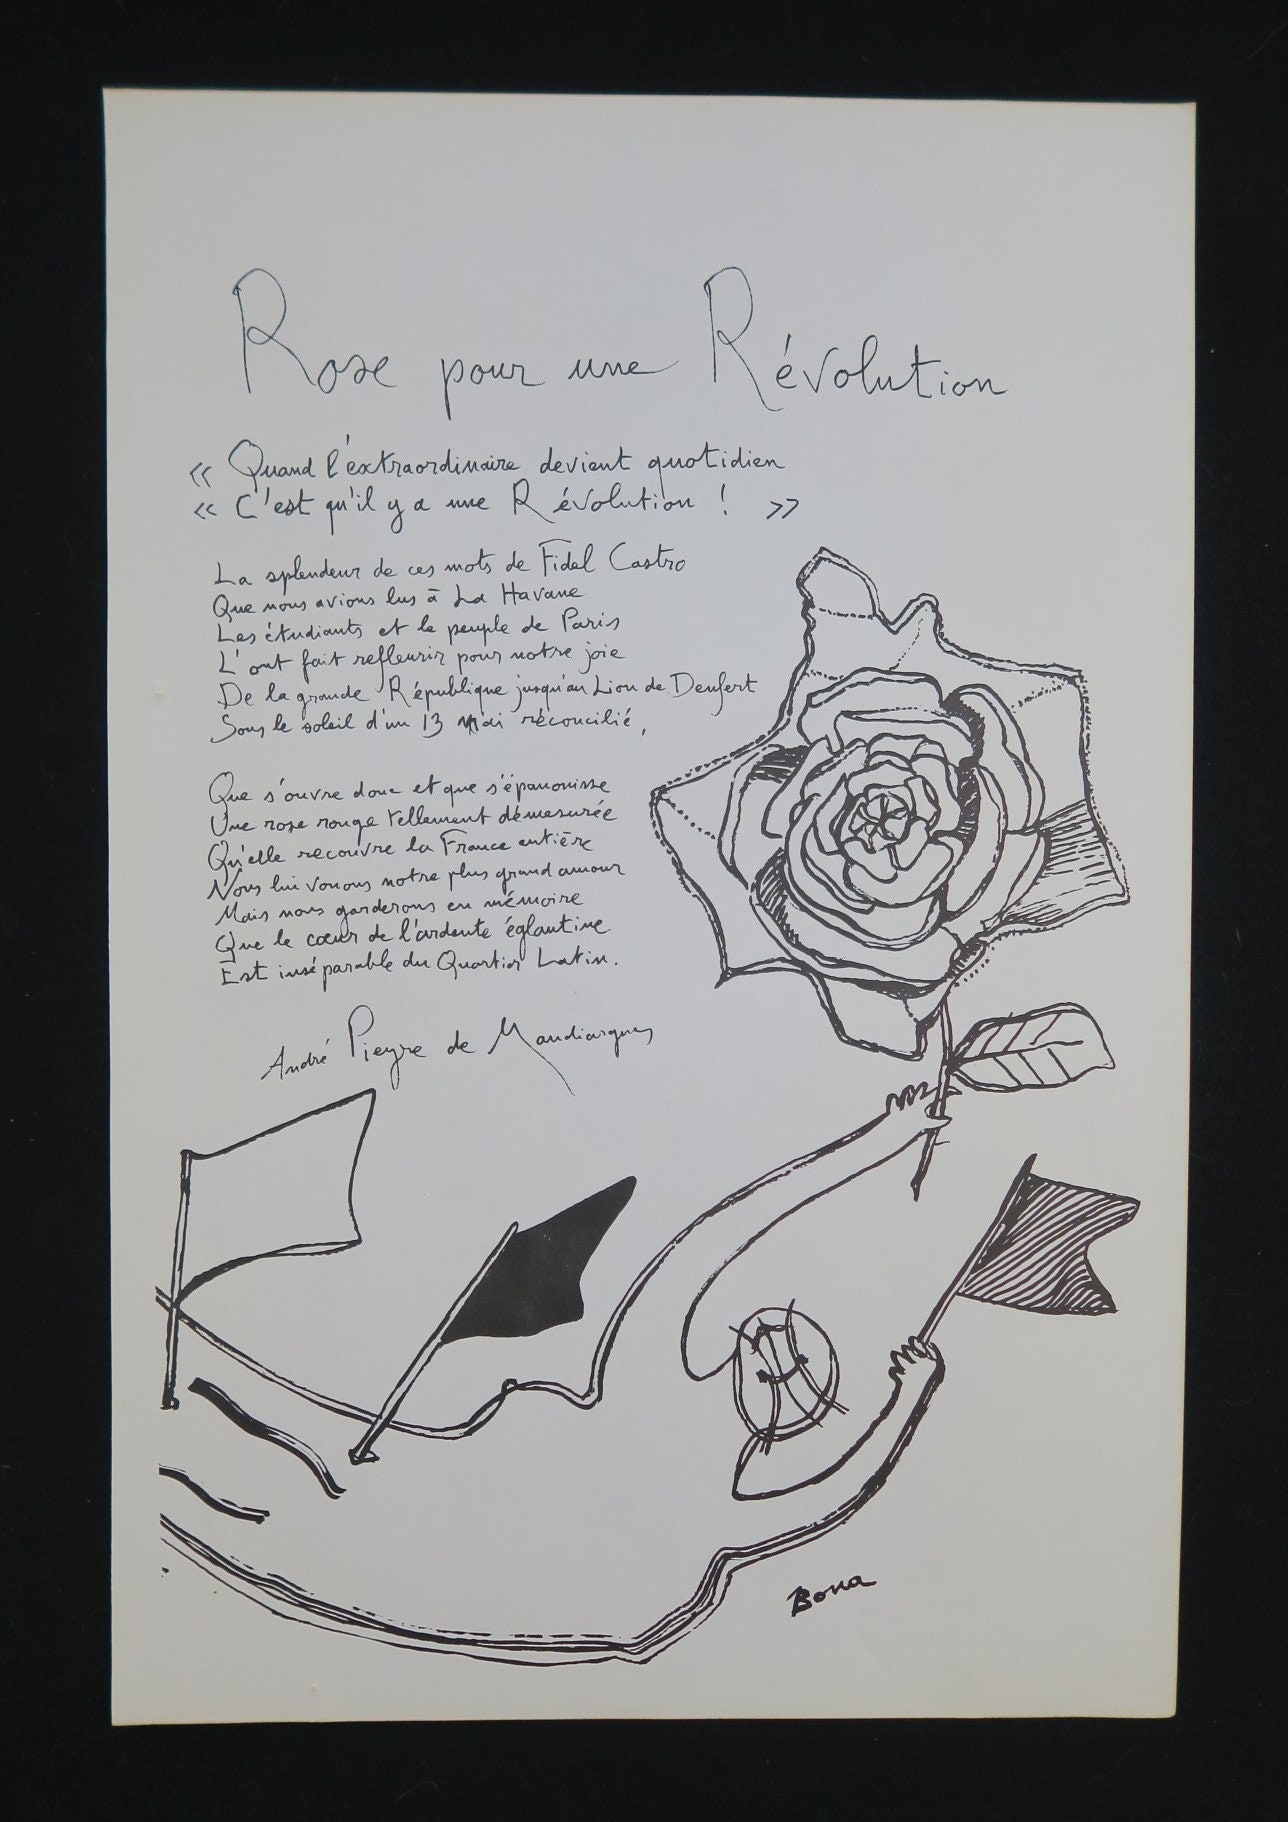 Rose pour une Révolution
« Quand l'éxtraordinaire devient quotidien
« C'est qu'il y a une Révolution ! »
La splendeur de ces mots de Fidel Castro
Que nous avions lus à La Havane
Les étudiants et le peuple de Paris
L'ont fait refleurir pour notre joie
De la grande République jusqu'au Lion de Denfert
Sous le soleil d'un 13 Mai réconcilié,
Que s'ouvre donc et que s'épanouisse
Une rose rouge tellement démesurée
Qu'elle recouvre la France entière
Nous lui vouons notre plus grand amour
Mais nous garderons en mémoire
Que le cœur de l'ardente églantine
Est inséparable du Quartier Latin.
André Pieyre de Mandiargues
Bona